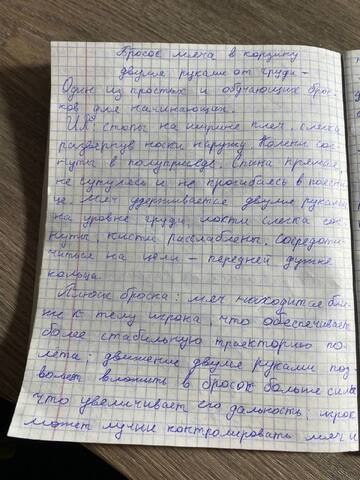 Бросок мяча в корзину
двумя руками от груди –
Один из простых и обучающих брос-
ков для начинающих.
И.П: стопы на ширине плеч, слегка
развернув носки наружу. Колени сог-
нуты в полуприсяде, спина прямая,
не сутулясь и не прогибаясь в поясни-
це. Мяч удерживается двумя руками
на уровне груди, локти слегка сог-
нуты, кисти расслаблены, сосредото-
читься на цели – передней дужке
кольца.
Плюсы броска: мяч находится бли-
же к телу игрока, что обеспечивает
более стабильную траекторию по-
лета; движение двумя руками поз-
волет вложить в бросок больше силы
что увеличивает его дальность, игрок
может лучше контролировать мяч и